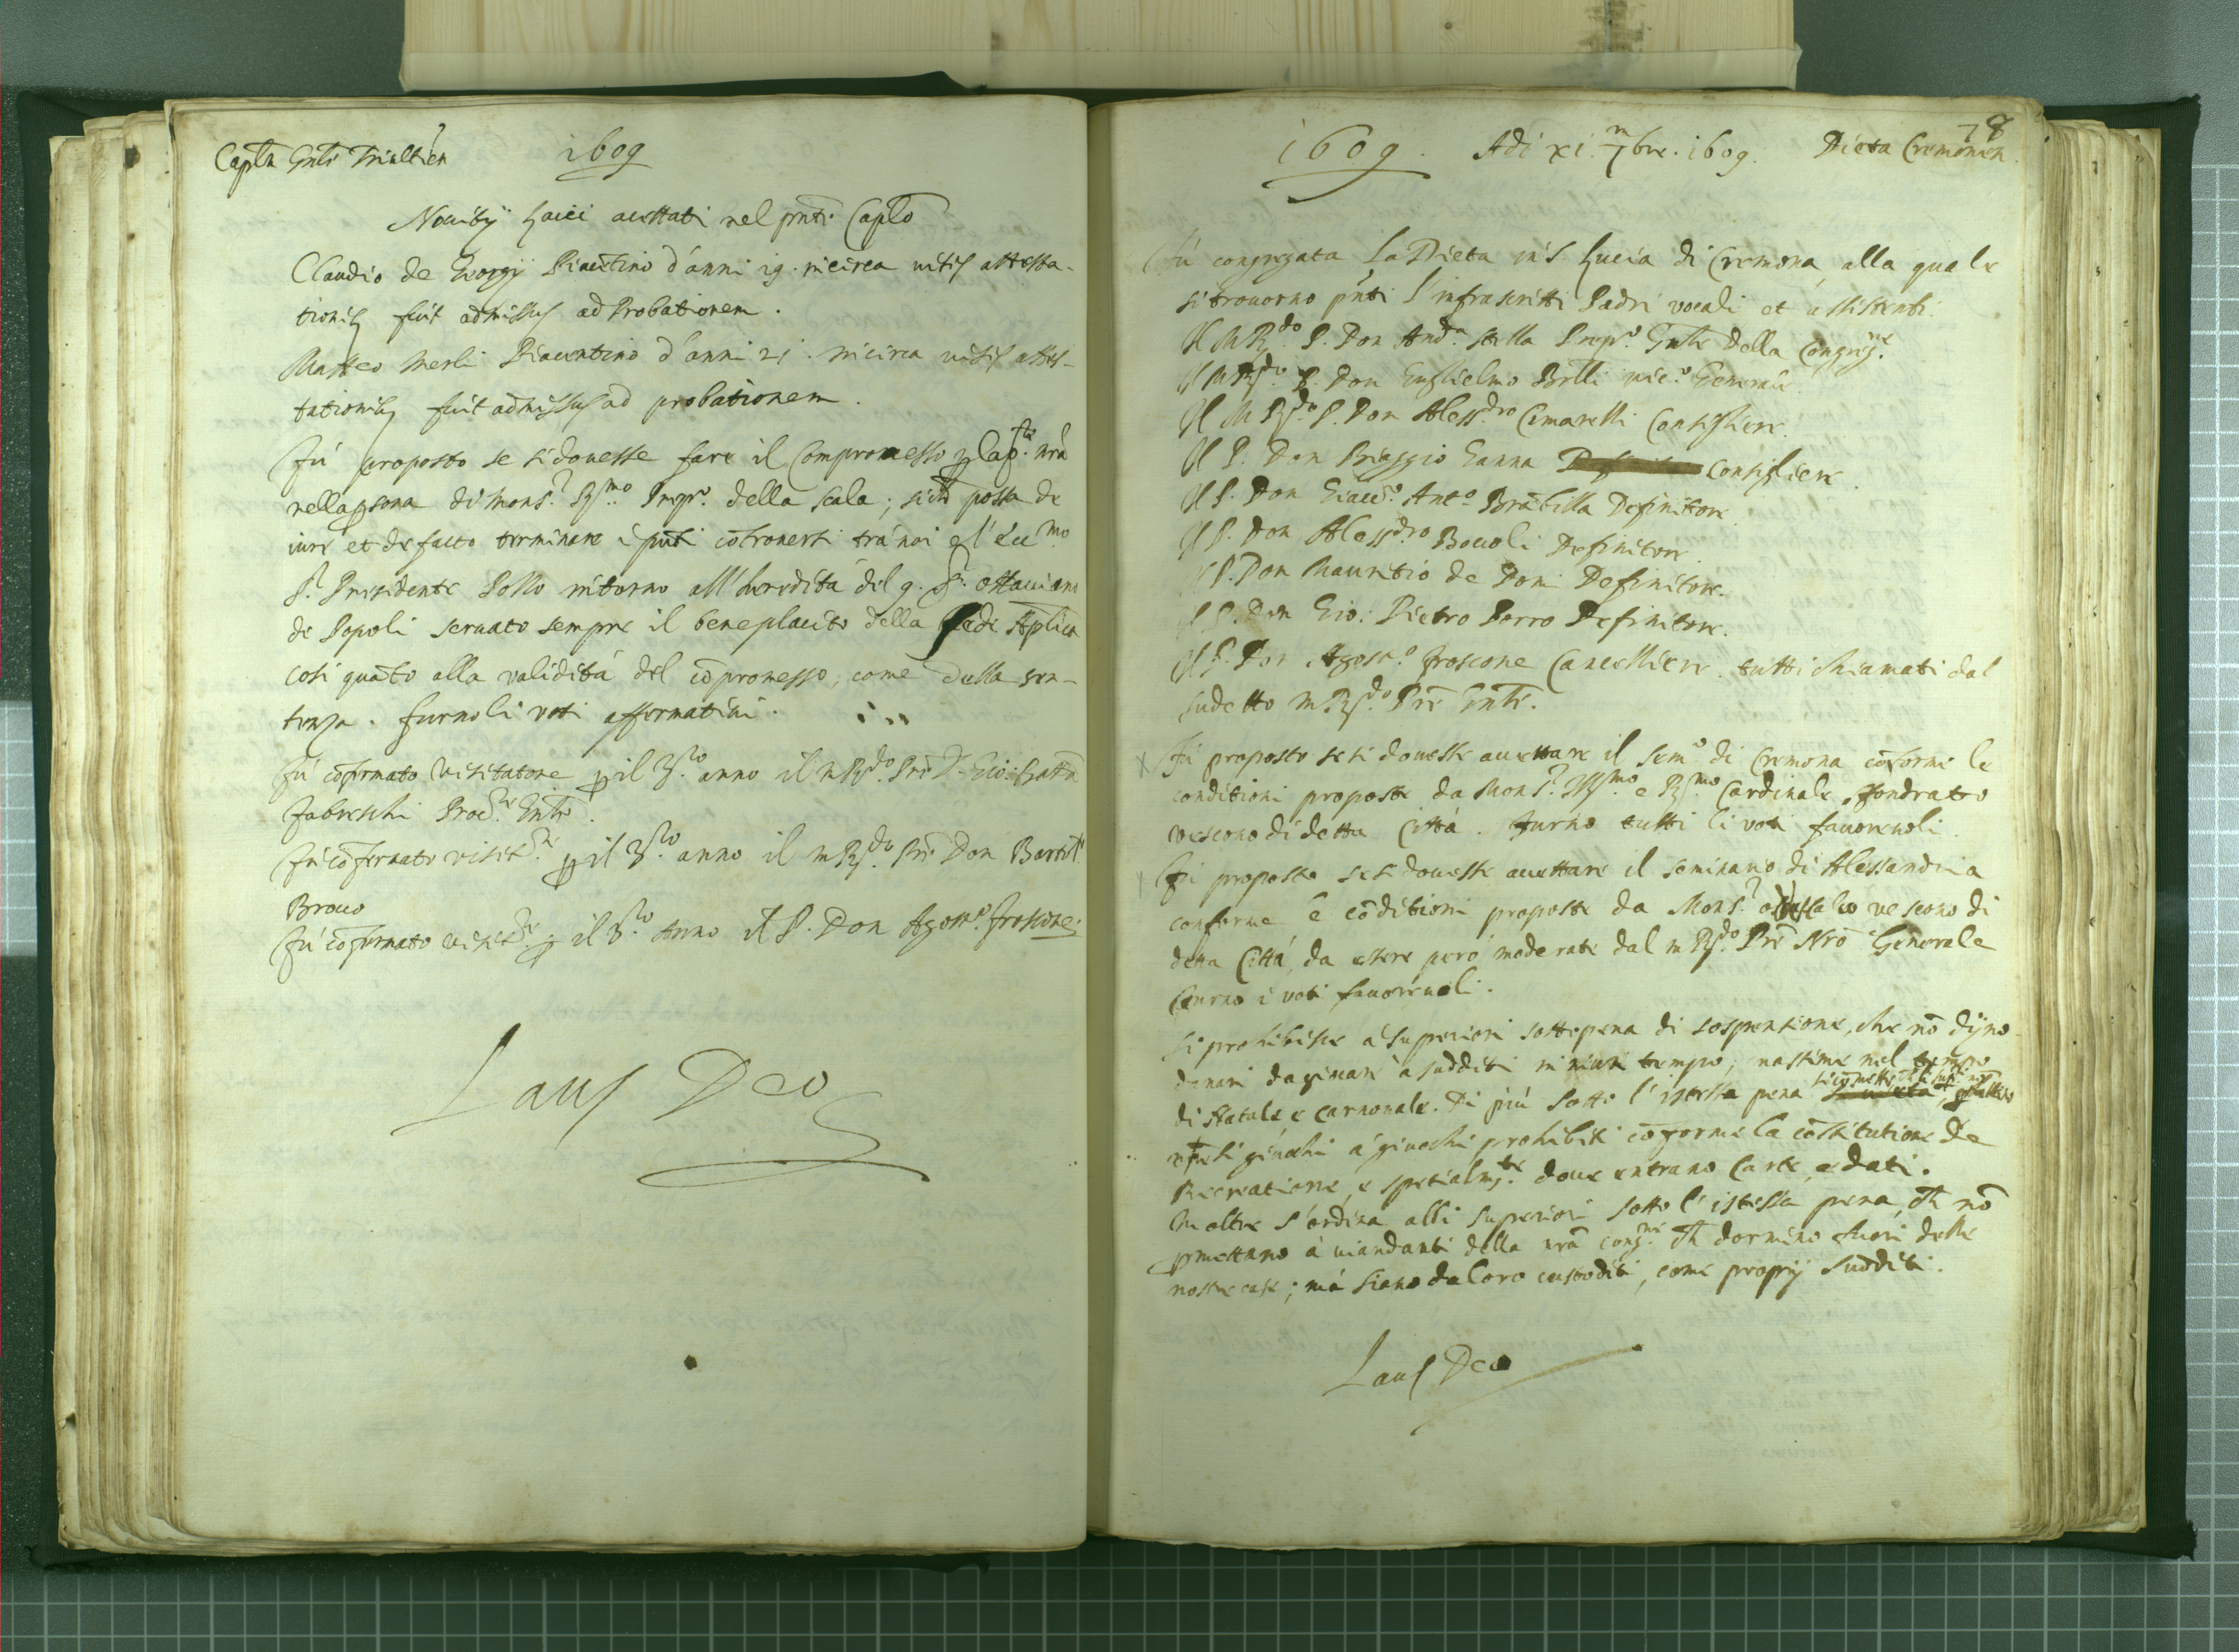 Caplũ Gnle Triulti en
1609
Nouitij Laici accettati nel pnte Caplo
Claudio de Giorgij Piacentino d'anni 19. in circa uisis attesta-
tionibꝫ fuit admissus ad Probationem.
Matteo Merli Piacentino d'anni 21. in circa uisis attes-
tationibꝫ fuit admissus ad probationem.
Fù proposto se si douesse fare il Compromesso ꝑ la pte nrã
nella ꝑsona di Mons.r R.mo Prep.o della Scala; sicħ possa de
iure et de facto terminare i pũti cõtrouersi trà noi e l'Ecc.mo
S.r Presidente Pollo intorno all'heredità del q. S.r Ottauiano
de Popoli seruato sempre il beneplacito della Sede Aplica
così quãto alla validità del cõpromesso, come della sen-
tenza. furno li voti affermatiui.
Fù cõfirmato Visitatore ꝑ il 3.zo anno il m R.do Prẽ D. Gio: Batta
Fabreschi Proc.re Gnle.
Fù cõfirmato visit.re ꝑ il 3.zo anno il m R.do Prẽ Don Bartol.o
Brocco
Fù cõfirmato visit.re ꝑ il 3.zo Anno il P. Don Agost.o froscone.
Laus Deo
78
1609. Adi xi. 7mbre. 1609. Dieta Cremonen.
Fù congregata La Dieta in S. Lucia di Cremona, alla quale
si trouorno pñti l'infrascritti Padri vocali et assistenti.
Il M R.do P. Don And.a Stella Prep.o Gnle della Congreg.ne
Il M R.do P. Don Guglielmo Brlli vic.o Generale
Il M R.do P. Don Aless.dro Cimarelli Consigliere.
Il P. Don Biaggio Ganna Consigliere.
Il P. Don Giac.o Ant.o Brãbilla Definitore.
Il P. Don Aless.dro Boccoli Definitore.
Il P. Don Mauritio de Domi Definitore.
Il P. Don Gio: Pietro Porro Definitore.
Il P. Don Agost.o froscone Cancelliere. tutti chiamati dal
sudetto m R.do Prẽ Gnle.
Fù proposto se si douesse accettare il Sem.o di Cremona cõforme le
conditioni proposte da Mons.r Ill.mo e R.mo Cardinale Sfondrato
vescouo di detta Città. Furno tutti li voti fauoreuoli.
Fù proposto se si douesse accettare il seminario di Alessandria
conforme le cõditioni proposte da Mons.r vescouo di
detta Città, da essere però moderate dal m R.do Prẽ Nrõ Generale
furno i voti fauoreuoli.
Si prohibisce a' Superiori sotto pena di sospensione, che nõ dijno
danari da giuocar à sudditi in niun tempo, massime nel tempo
di Natale, e carnouale. Di più sotto l'istessa pena
si giuochi à giuochi prohibiti cõforme la cõstitutione De
Recreatione, e spetialm.te doue entrano Carte, e dati.
In oltre s'ordina alli superiori sotto l'istessa pena, cħ nõ
ꝑmettano à uiandanti della nrã cong.ne cħ dormino fuori delle
nostre case; mà siano da loro custoditi, come proprij sudditi.
Laus Deo